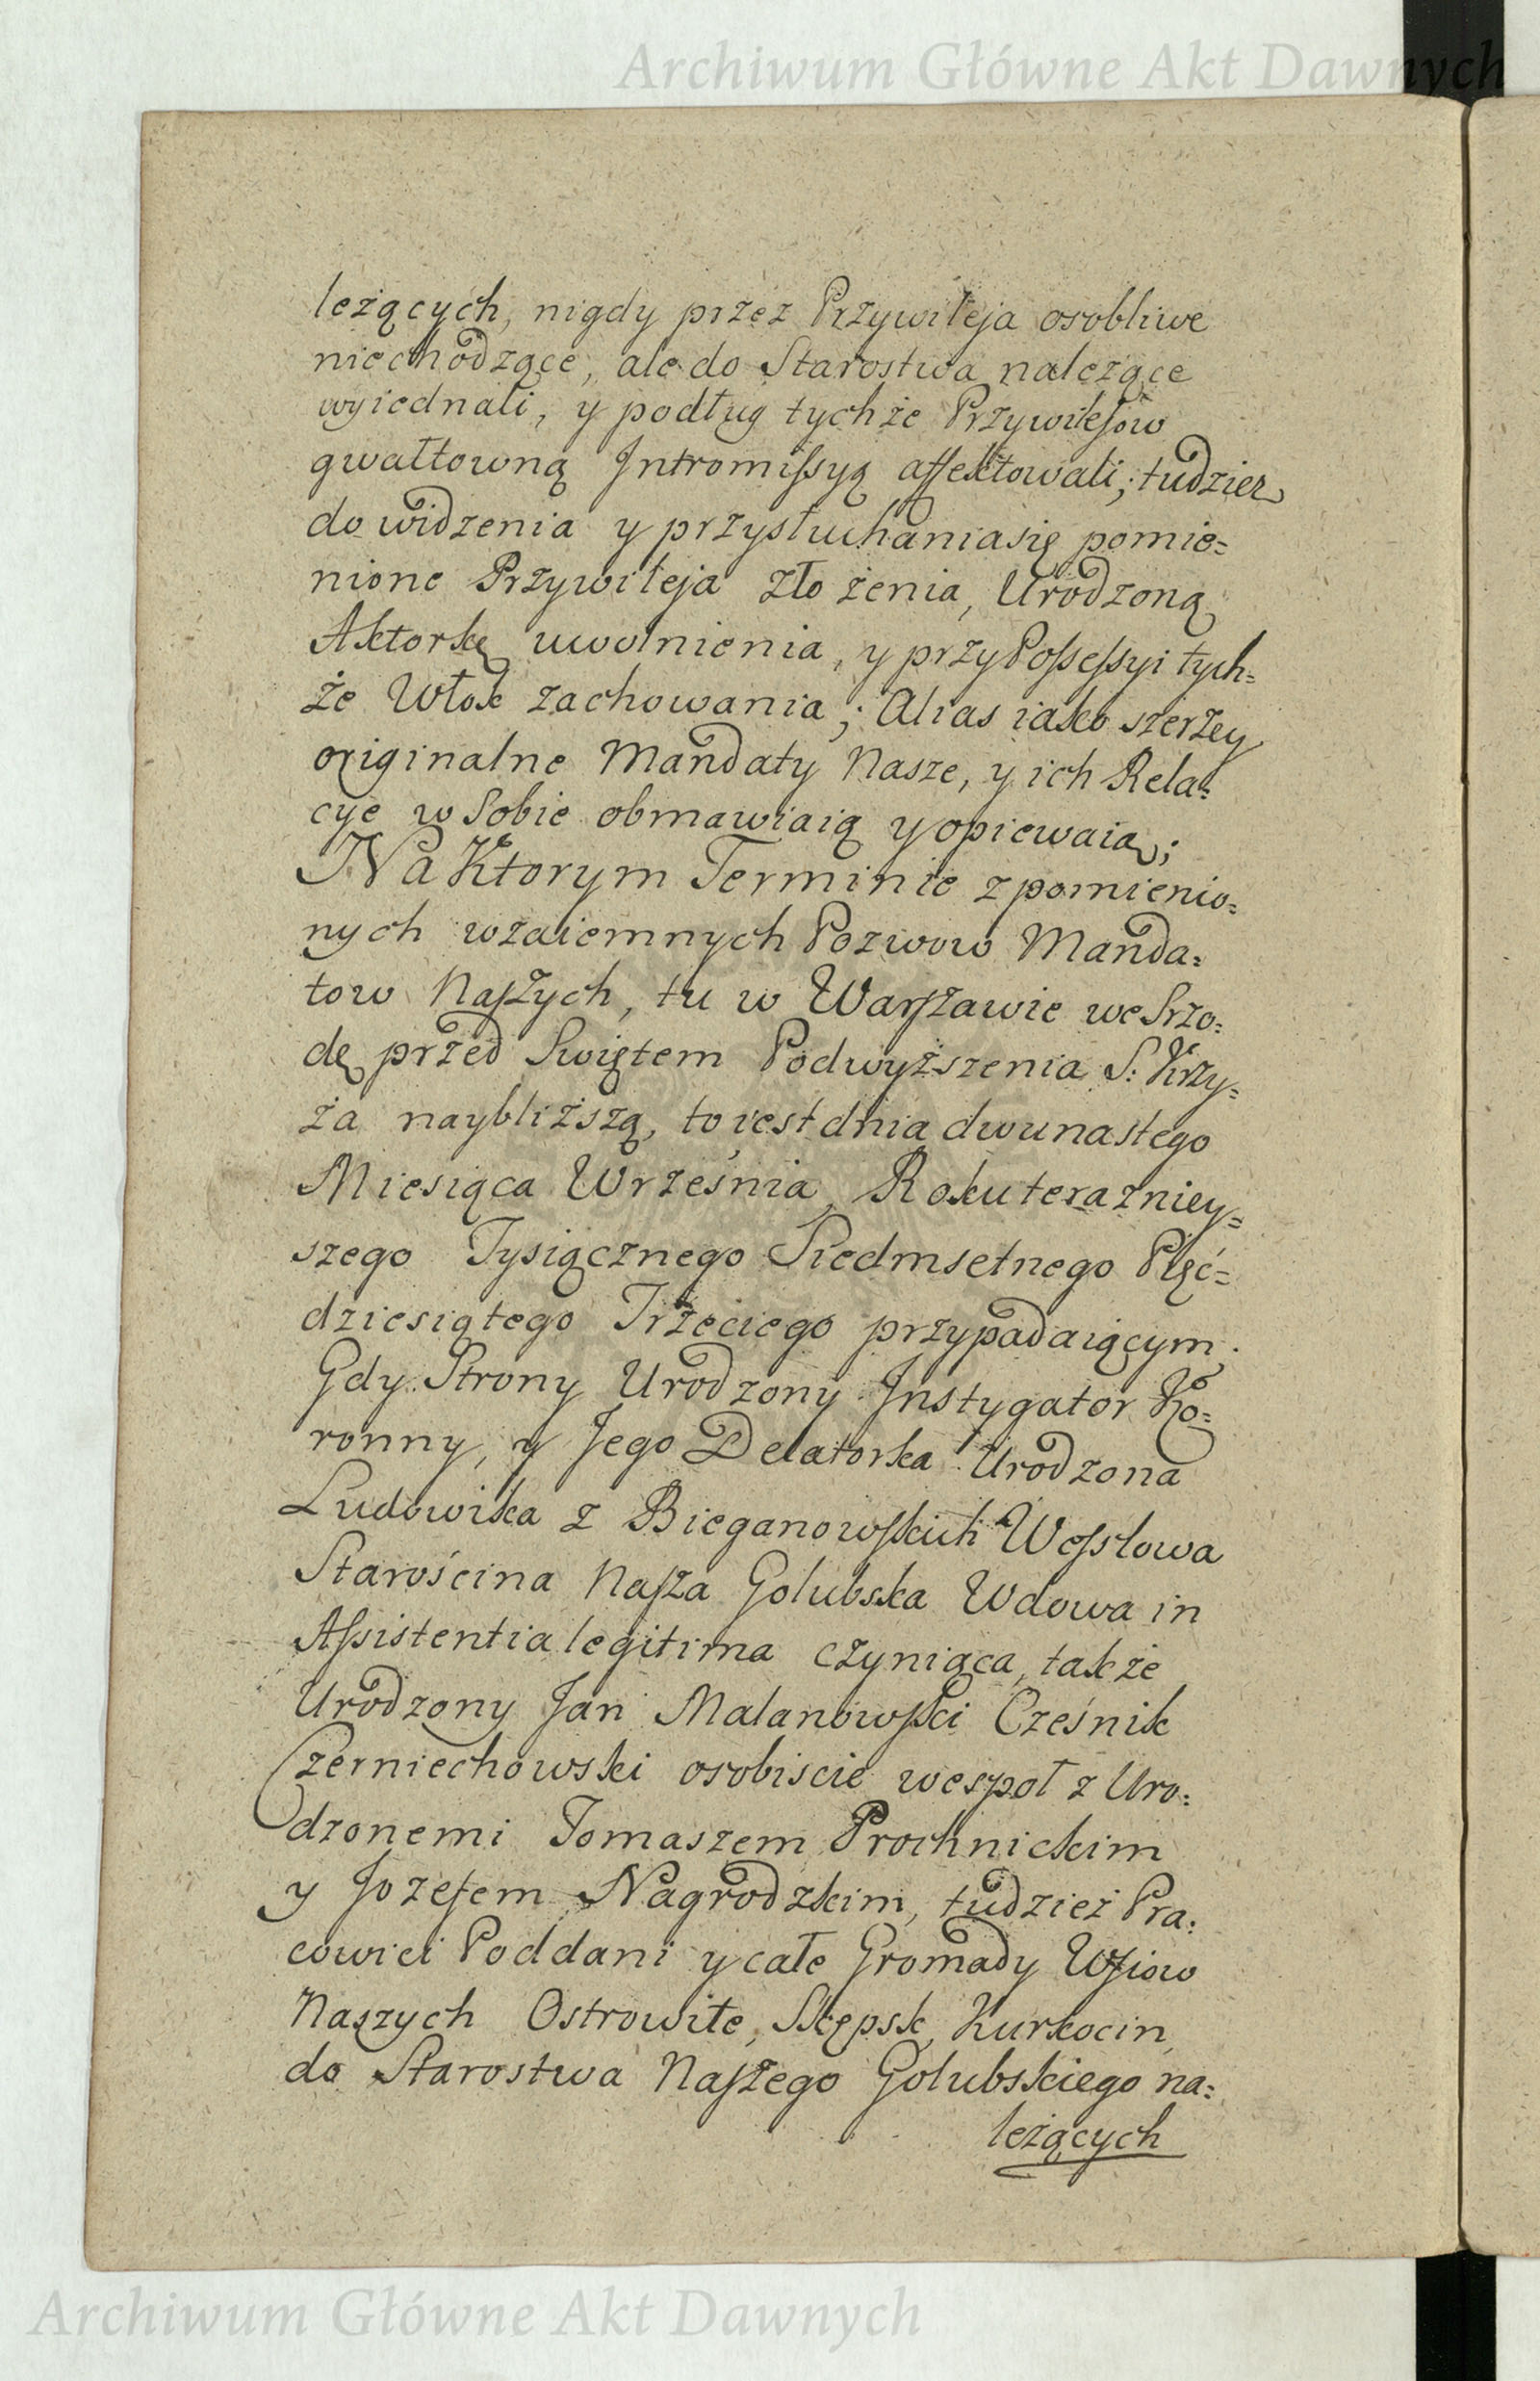 Archiwum Główne Akt Dawnych
leżących, nigdy przez Przywileja osobliwe
niechodzące, ale do Starostwa należące
wyiednali, y podług tychże Przywilejow
gwałtowną Jntromissyą affektowali; tudziez
do widzenia y przysłuchaniasię pomie=
nione Przywileja złożenia, Urodzoną
Aktorkę uwolnienia, y przy Possessyi tych=
że Włok zachowania; Alias iako szerzey
originalne Mandaty Nasze, y ich Rela=
cye w Sobie obmawiaią y opiewaią;
Na Ktorym Terminie z pomienio=
nych wzaiemnych Pozwow Manda=
tow Naszych, tu w Warszawie we Srzo=
dę przed Swiętem Podwyższenia S: Krzy=
ża naybliższą, to iest dnia dwunastego
Miesiąca Września, Roku terazniey=
szego Tysiącznego Siedmsetnego Pięć=
dziesiątego Trzeciego przypadaiącym.
Gdy Strony Urodzony Jnstygator Ko=
ronny, y Jego Delatorka Urodzona
Ludowika z Bieganowskich Wesslowa
Starościna Nasza Golubska Wdowa in
Assistentia legitima czyniąca, także
Urodzony Jan Malanowski Cześnik
Czerniechowski osobiscie wespoł z Uro=
dzonemi Tomaszem Prochnickim
y Jozefem Nagrodzkim, tudzież Pra=
cowici Poddani y całe Gromady Wsiow
Naszych Ostrowite, Skępsk, Kurkocin,
do Starostwa Naszego Golubskiego na=
leżących
Archiwum Główne Akt Dawnych